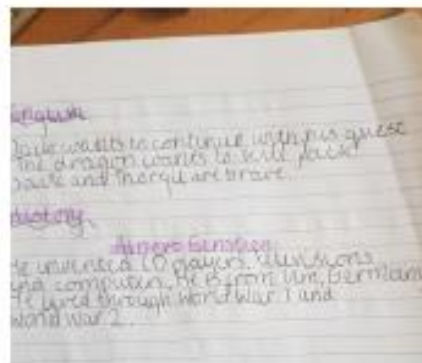 English
Jack wants to continue with his quest
The dragon wants to kill Jack
Jack and are brave.
History
Albert Einstein
He invented CD players, televisions
and computers. He is from Ulm, Germany
He lived through World War 1 and
World War 2.